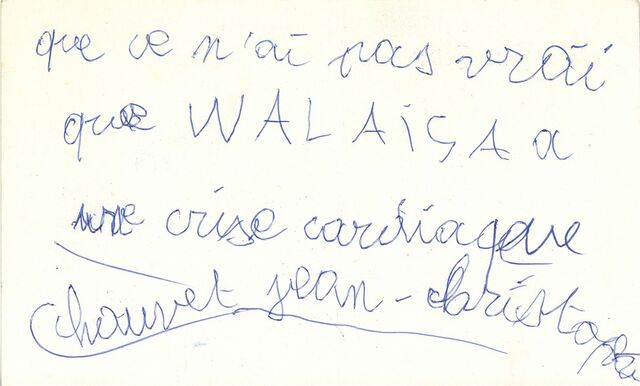 que ce n'ai pas vrai
que WALAiSA a
une crise cardiaque
Chouvet jean-christophe